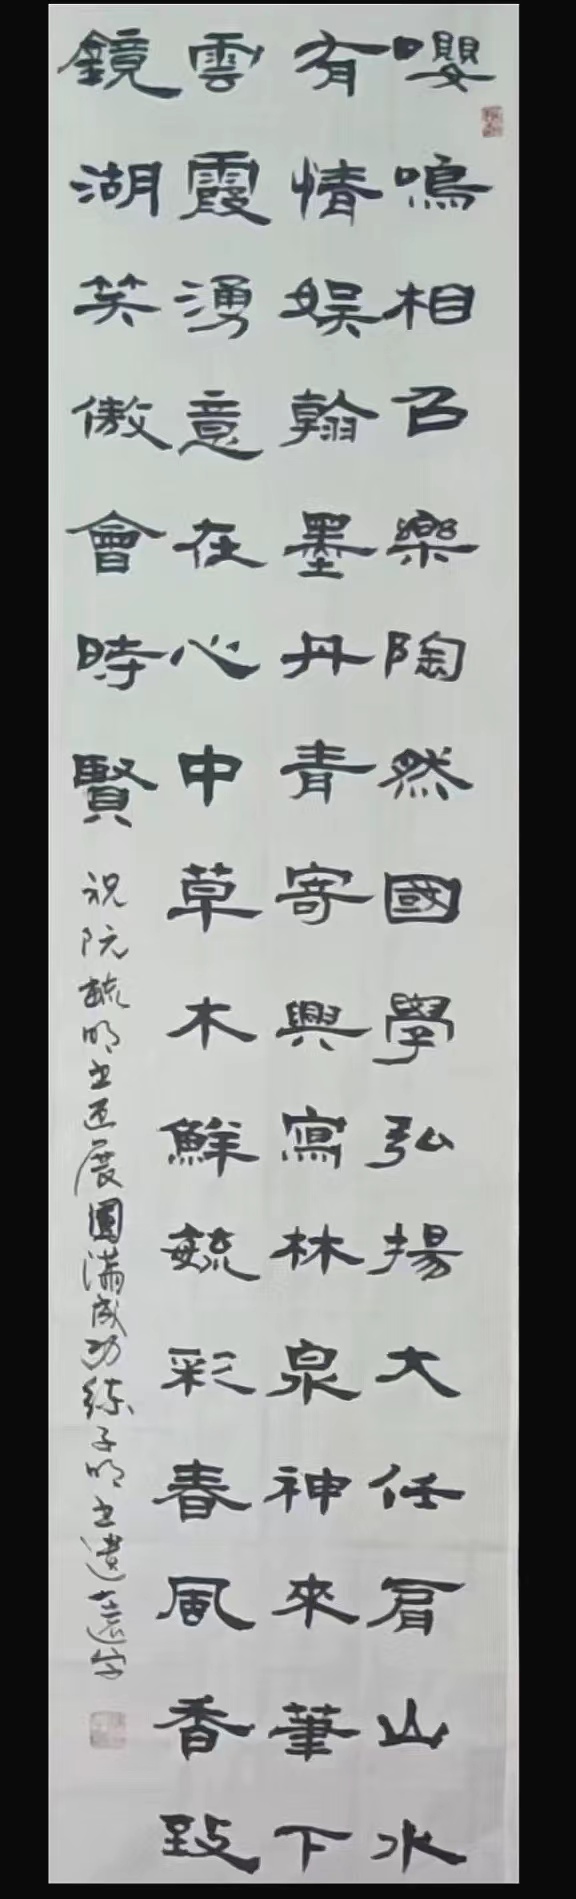 嚶鳴相召樂陶然國學弘揚大任肩山水
有情娛翰墨丹青寄興寫林泉神來筆下
雲霞湧意在心中草木鮮毓彩春風香致
鏡湖笑傲會時賢
祝阮毓明書画展圓滿成功練子明書遺意字